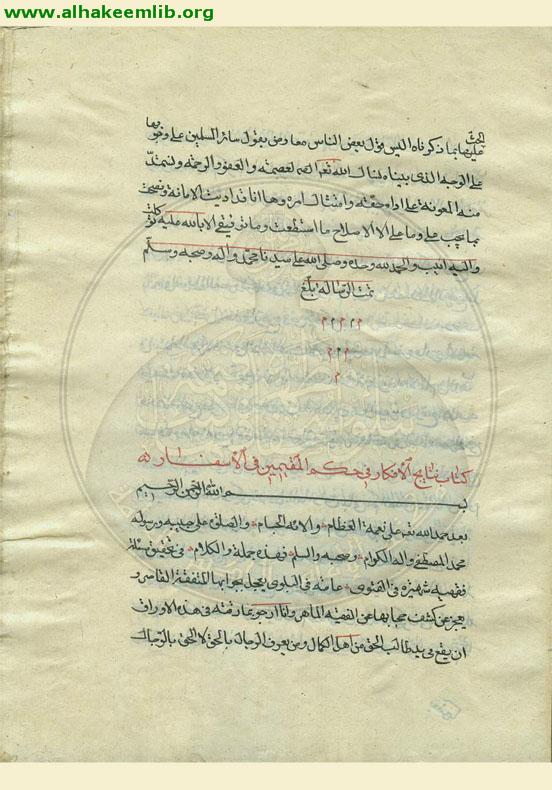 www.alhakeemlib.org
الحث
عليها بما ذكرناه اليس قول بعض الناس معارض بقول سائر المسلمين على وقوعها
على الوجه الذى بيناه ونسال الله تعم العصمة والعفو والرحمة ونستمد
منه المعونة على اداء حقه وامتثال امره وها انا قد اديت الامانة ونصحت
بما يجب على وما على الا الاصلاح ما استطعت وما توفيقى الا بالله عليه توكلت
واليه انيب والحمد لله وحده وصلى الله على سيدنا محمد واله وصحبه وسلم
تمت الرسالة بلغ
م م م م م
م م م
م
كتاب نتايج الافكار فى حكم المقيمين فى الاسفار له
بسم الله الرحمن الرحيم
بعد حمد الله تعم على نعمه العظام والائه الجسام والصلوة على حبيبه ورسوله
محمد المصطفى واله الكرام وصحبه والسلم فهذه جملة والكلام فى تحقيق مسئلة
فقهيه شهيرة فى الفتوى عامة فى البلوى يعجل بجوابها المتفقه القاسى و
يعجز عن كشف حجابها عن الفقيه الماهر وانا ارجو عاد قته فى هذه الاوراق
ان يقع بيد طالب الحق من اهل الكمال ومن يعرف الرجال بالحق لا الحق بالرجال